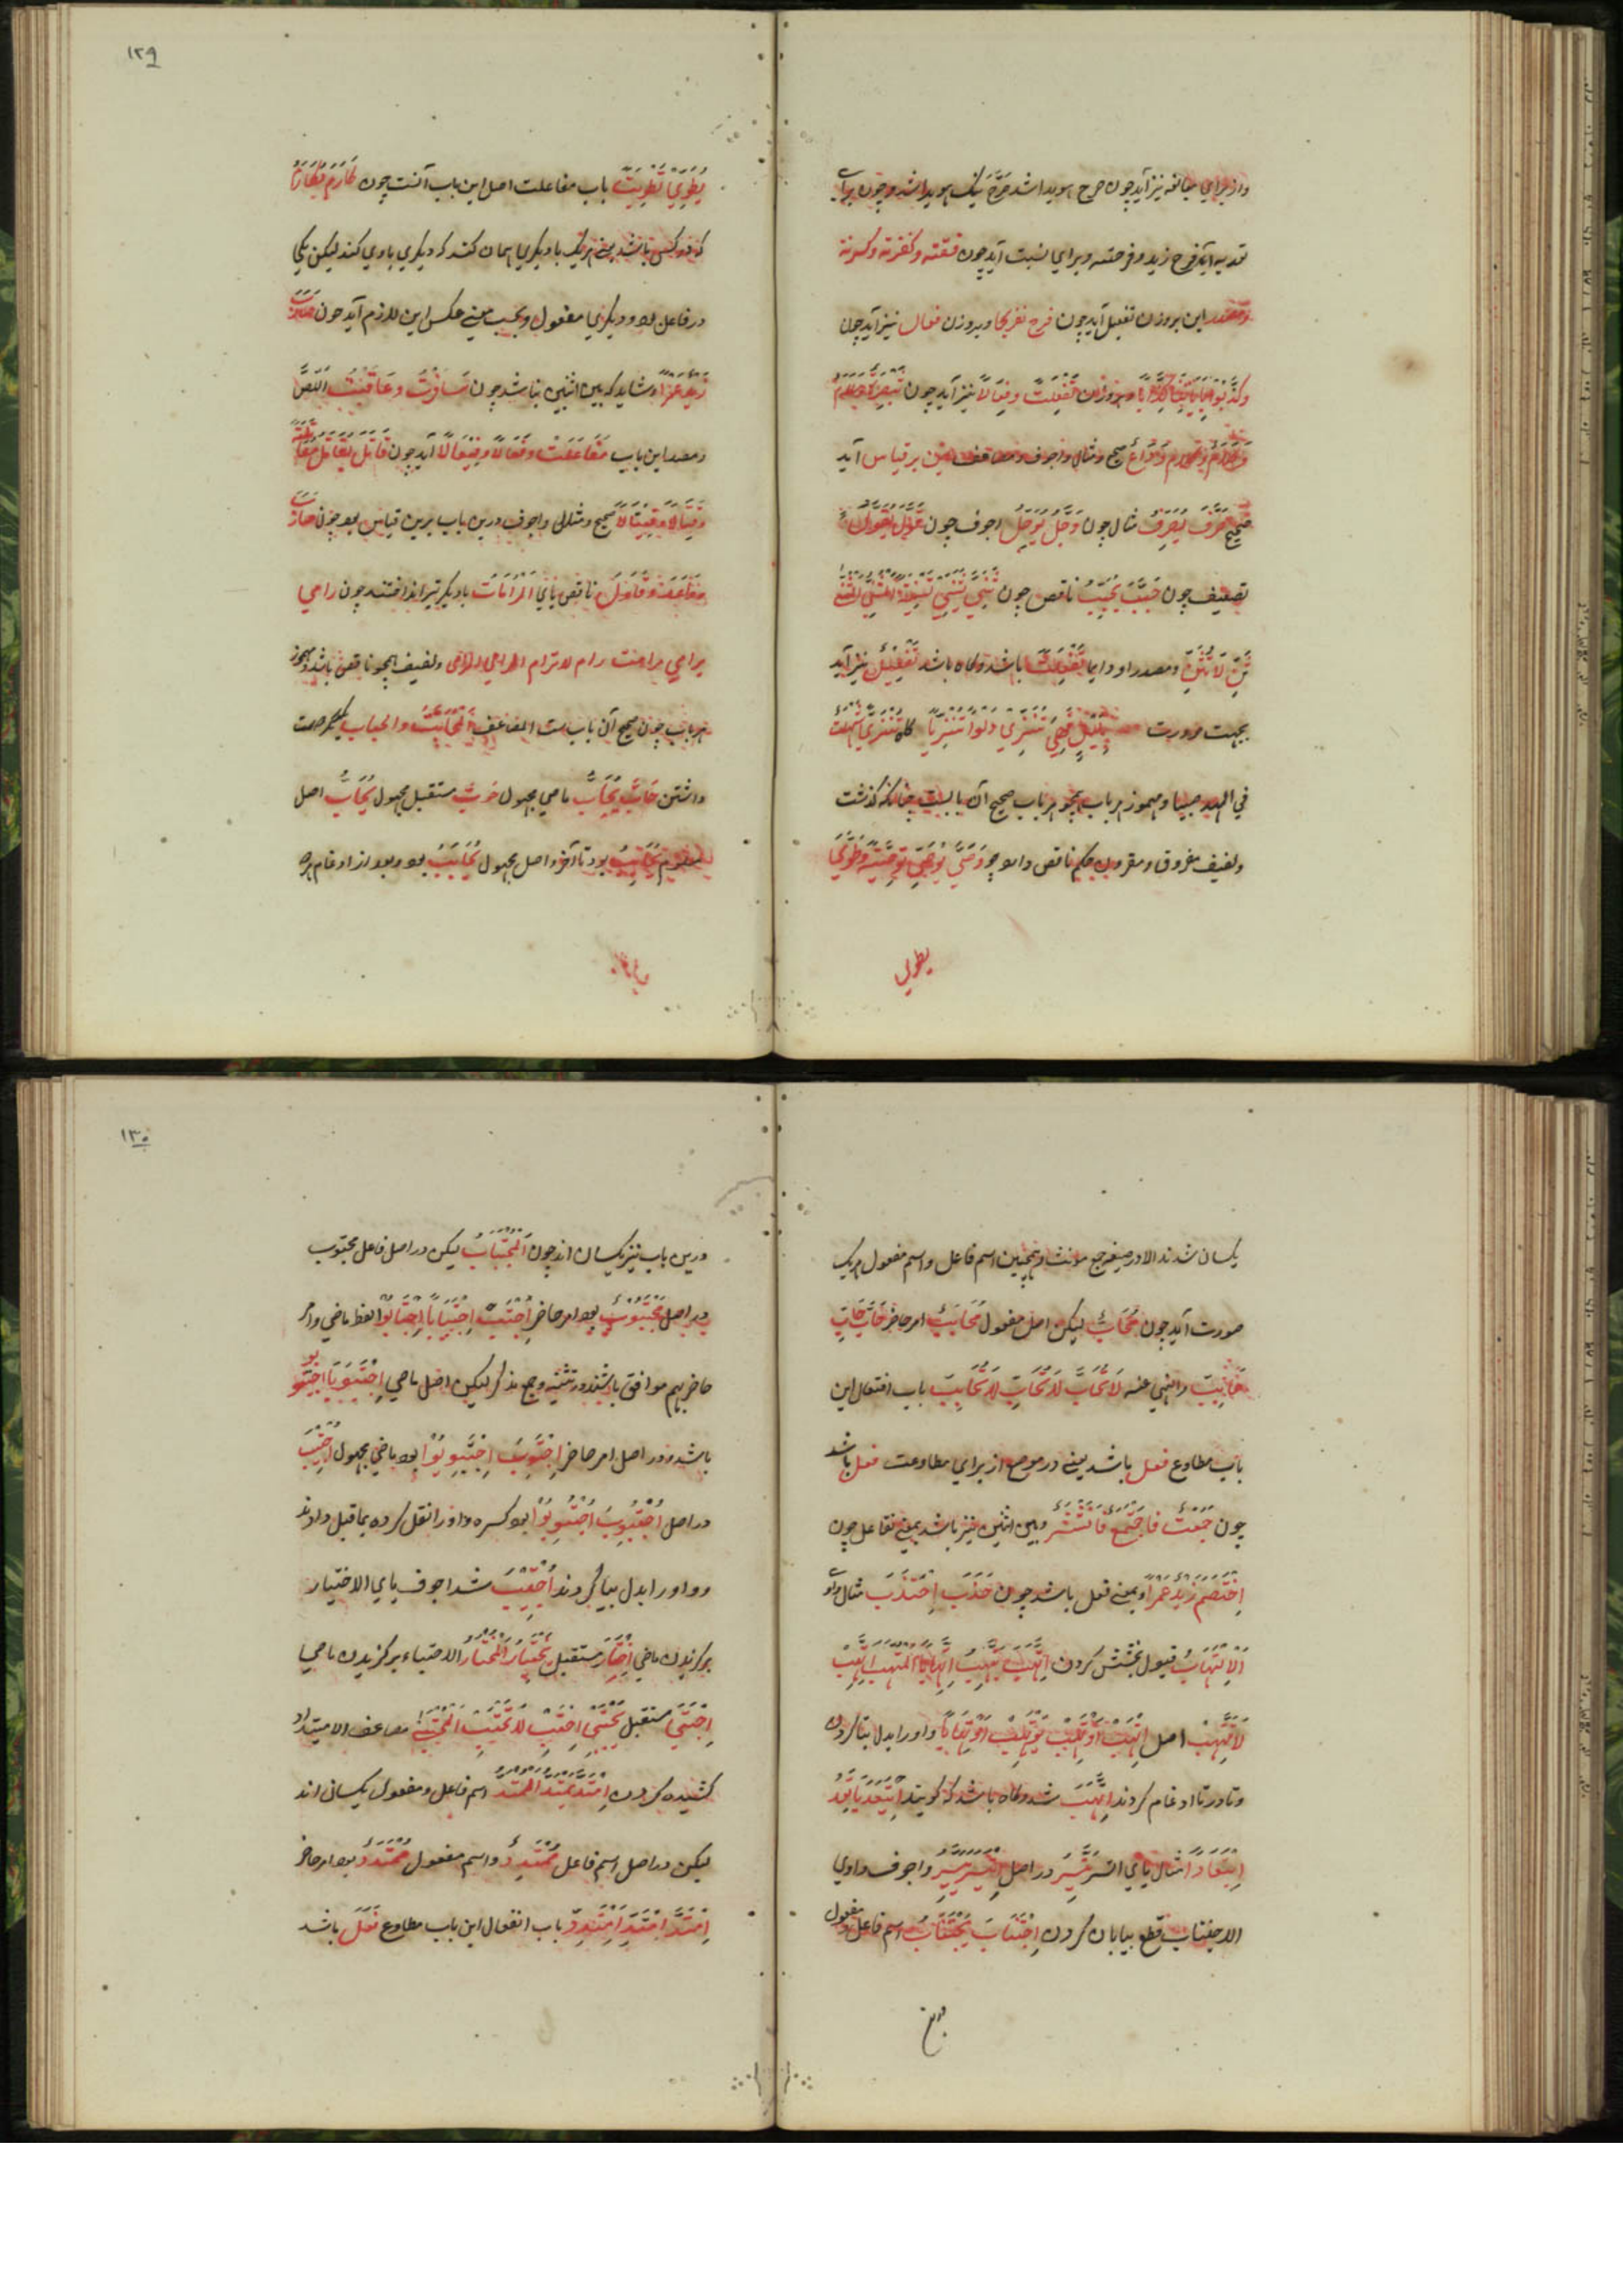 واز برای مبالغه نیز آید چون صرح هویدا شد صَرَّحَ نیک هویدا شد و چون برای
تعدیه آید فرح زید و فرحته و برای نسبت آید چون فسقته و کفرته و
ومصدر این بروزن تفعیل آید چون فرح تفریحا و بروزن فعال نیز آید چون
وکذبوا بایاتنا کذابا و بروزن تَفْعِلَت و فِعَالاً نیز آید چون تبصرة
صحیح و مثال و اجوف و مضاعف این بر قیاس آید
صحیح صَرَّفَ یُصَرِّفُ مثال چون وَجَّلَ یُوَجِّلُ اجوف چون
تضعیف چون حَبَّبَ یُحَبِّبُ ناقص چون ثَنَّی یُثَنِّی تَثْنِیَةً
ثَنِّ لَا تُثَنِّ ومصدر او دایما تَفْعِلَتْ باشد وگاه باشد تَفْعِیْل نیز آید
بجهت ضرورت
فی المهد صبیا و مهموز هر باب همچو هر باب صحیح آن بابست چنانکه گذشت
ولفیف مفروق و مقرون حکم ناقص دارد چو وَصَّی یُوَصِّی تَوْصِیَةً وطَوَّی
یطوی
۱۲۹
یُطَوِّیْ تَطْوِیَتً باب مفاعلت اصل این باب آنست چون
که دو کس باشد یعنی هر یک با دیگری همان کند که دیگری باوی کند لیکن یکی
در فاعل بود و دیگری مفعول و بحسب معنی عکس این لازم آید چون ضارب
زید عمرا و شاید که بین اثنین نباشد چون سَافَرْتُ و عَاقَبْتُ اللِّصَّ
ومصدر این باب مُفَاعَلَتْ وفِعَالاً وفِیْعَالاً آید چون قَاتَل یُقَاتِل مُقَاتَلَةً
وقِتَالاً وقِیْتَالاً صحیح و مثال و اجوف درین باب برین قیاس بود چون ضارب
ناقص یائی اَلْمُرَامَاتُ بادیگر تیر انداختند چون رامی
یرامی مرامت رام لاترام المرامی المرامی ولفیف همچو ناقص باشد و مهموز
هر باب چون صحیح آن بابست المضاعف المُحَابَّتُ والحباب
داشتن حَابَّ یُحَابُّ ماضی مجهول حُوبَّ مستقبل مجهول یُحَابُّ اصل
معلوم یُحَابِبُ بود تا آخر و اصل مجهول یُحَابَبُ بود و بعد از ادغام هر دو
یکسان شدند الا در صیغه جمع مؤنث و همچنین اسم فاعل و اسم مفعول هر یک
صورت آید چون مُحَابٌّ لیکن اصل مفعول مُحَابَبٌ امر حاضر حَابَّ حَابِّ
حَابِبْ والنهی عنه لَا تُحَابَّ لَا تُحَابِّ لَا تُحَابِبْ باب افتعال این
باب مطاوع فعل باشد یعنی در موضع از برای مطاوعت فعل باشد
چون جَمَعْتُ فَاجْتَمَعَ فَانْتَشَرَ وبین اثنین نیز باشد بمعنی تفاعل چون
اِخْتَصَمَ زَیْدٌ عَمْرًا و بمعنی فعل باشد چون جَذَبَ اِجْتَذَبَ مثال واوی
اَلْاِتِّهَابُ قبول بخشش کردن اِتَّهَبَ یَتَّهِبُ اِتِّهَابًا المُتَّهِب اِتَّهِبْ
لَاتَتَّهِبْ اصل اِتَّهَبَ اِوْتَهَبَ یَوْتَهِبُ اِوْتِهَابًا واو را بدل بتا کردن
وتا در تا ادغام کردند اِتَّهَبَ شد وگاه باشد که گویند اِیْتَعَدَ یَاتَعِدُ
اِیْتِعَادًا مثال یائی اتَّسَرَ یَتَّسِرُ در اصل اِیْتَسَرَ یَیْتَسِرُ و اجوف واوی
الاجتیاب قطع بیابان کردن اِجْتَابَ یَجْتَابُ اسم فاعل و مفعول
درین
۱۳۰
درین باب نیز یکسان اند چون اَلْمُجْتَابُ لیکن در اصل فاعل مجتوب
در اصل مُجْتَوَبٌ بود امر حاضر اِجْتَبْ اِجْتَابَا اِجْتَابُوْا لفظ ماضی و امر
حاضر بهم موافق باشند در تثنیه و جمع مذکر لیکن اصل ماضی اِجْتَوَبَا اِجْتَوَبُو
باشد و در اصل امر حاضر اِجْتَوِبْ اِجْتَوِبُوْا بود ماضی مجهول اُجْتِیْبَ
در اصل اُجْتُوِبَ اُجْتُوِبُوْا بود کسره واو را نقل کرده بماقبل دادند
و واو را بدل بیا کردند اُجْتِیْبَ شد اجوف یائی الاختیار
برگزیدن ماضی اِخْتَارَ مستقبل یَخْتَارُ المُخْتَارُ الاجتباء برگزیدن ماضی
اِجْتَبَی مستقبل یَجْتَبِی اِجْتَبِ لَا تَجْتَبِ المُجْتَبِی مضاعف الامتداد
کشیده کردن اِمْتَدَّ یَمْتَدُّ المُمْتَدُّ اسم فاعل و مفعول یکسانی اند
لیکن در اصل اسم فاعل مُمْتَدِدٌ و اسم مفعول مُمْتَدَدٌ بود امر حاضر
اِمْتَدَّ اِمْتَدِّ اِمْتَدِدْ باب انفعال این باب مطاوع فَعَلَ باشد